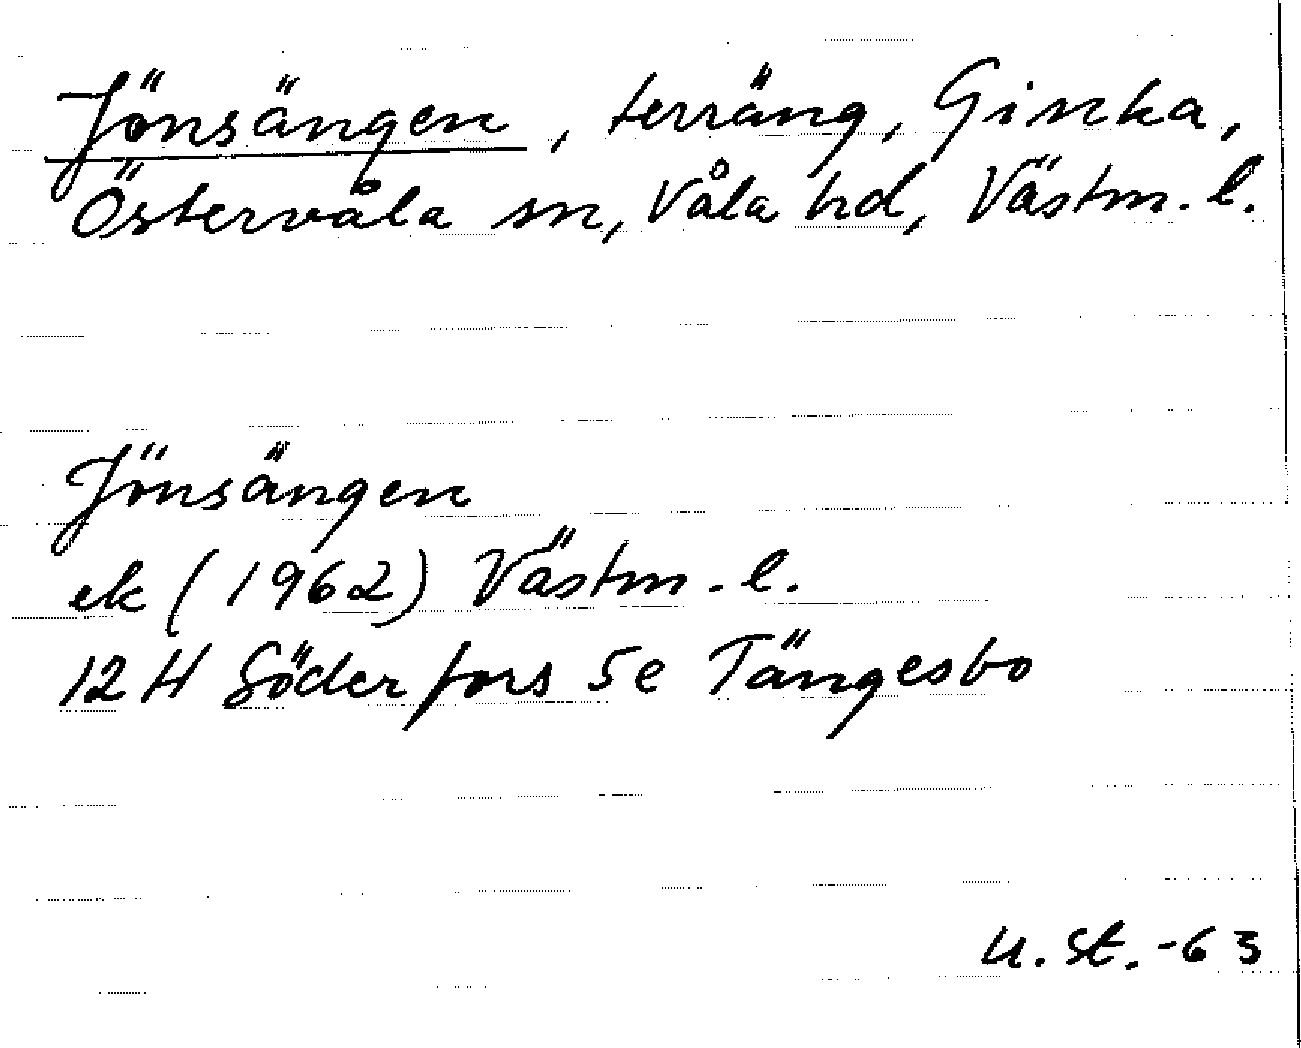 Jönsängen, terräng, Ginka,
Östervåla sn, Våla hd, Västm. l.
Jönsängen
ek (1962) Västm. l.
12 H Söderfors 5e Tängesbo
U. St. -63